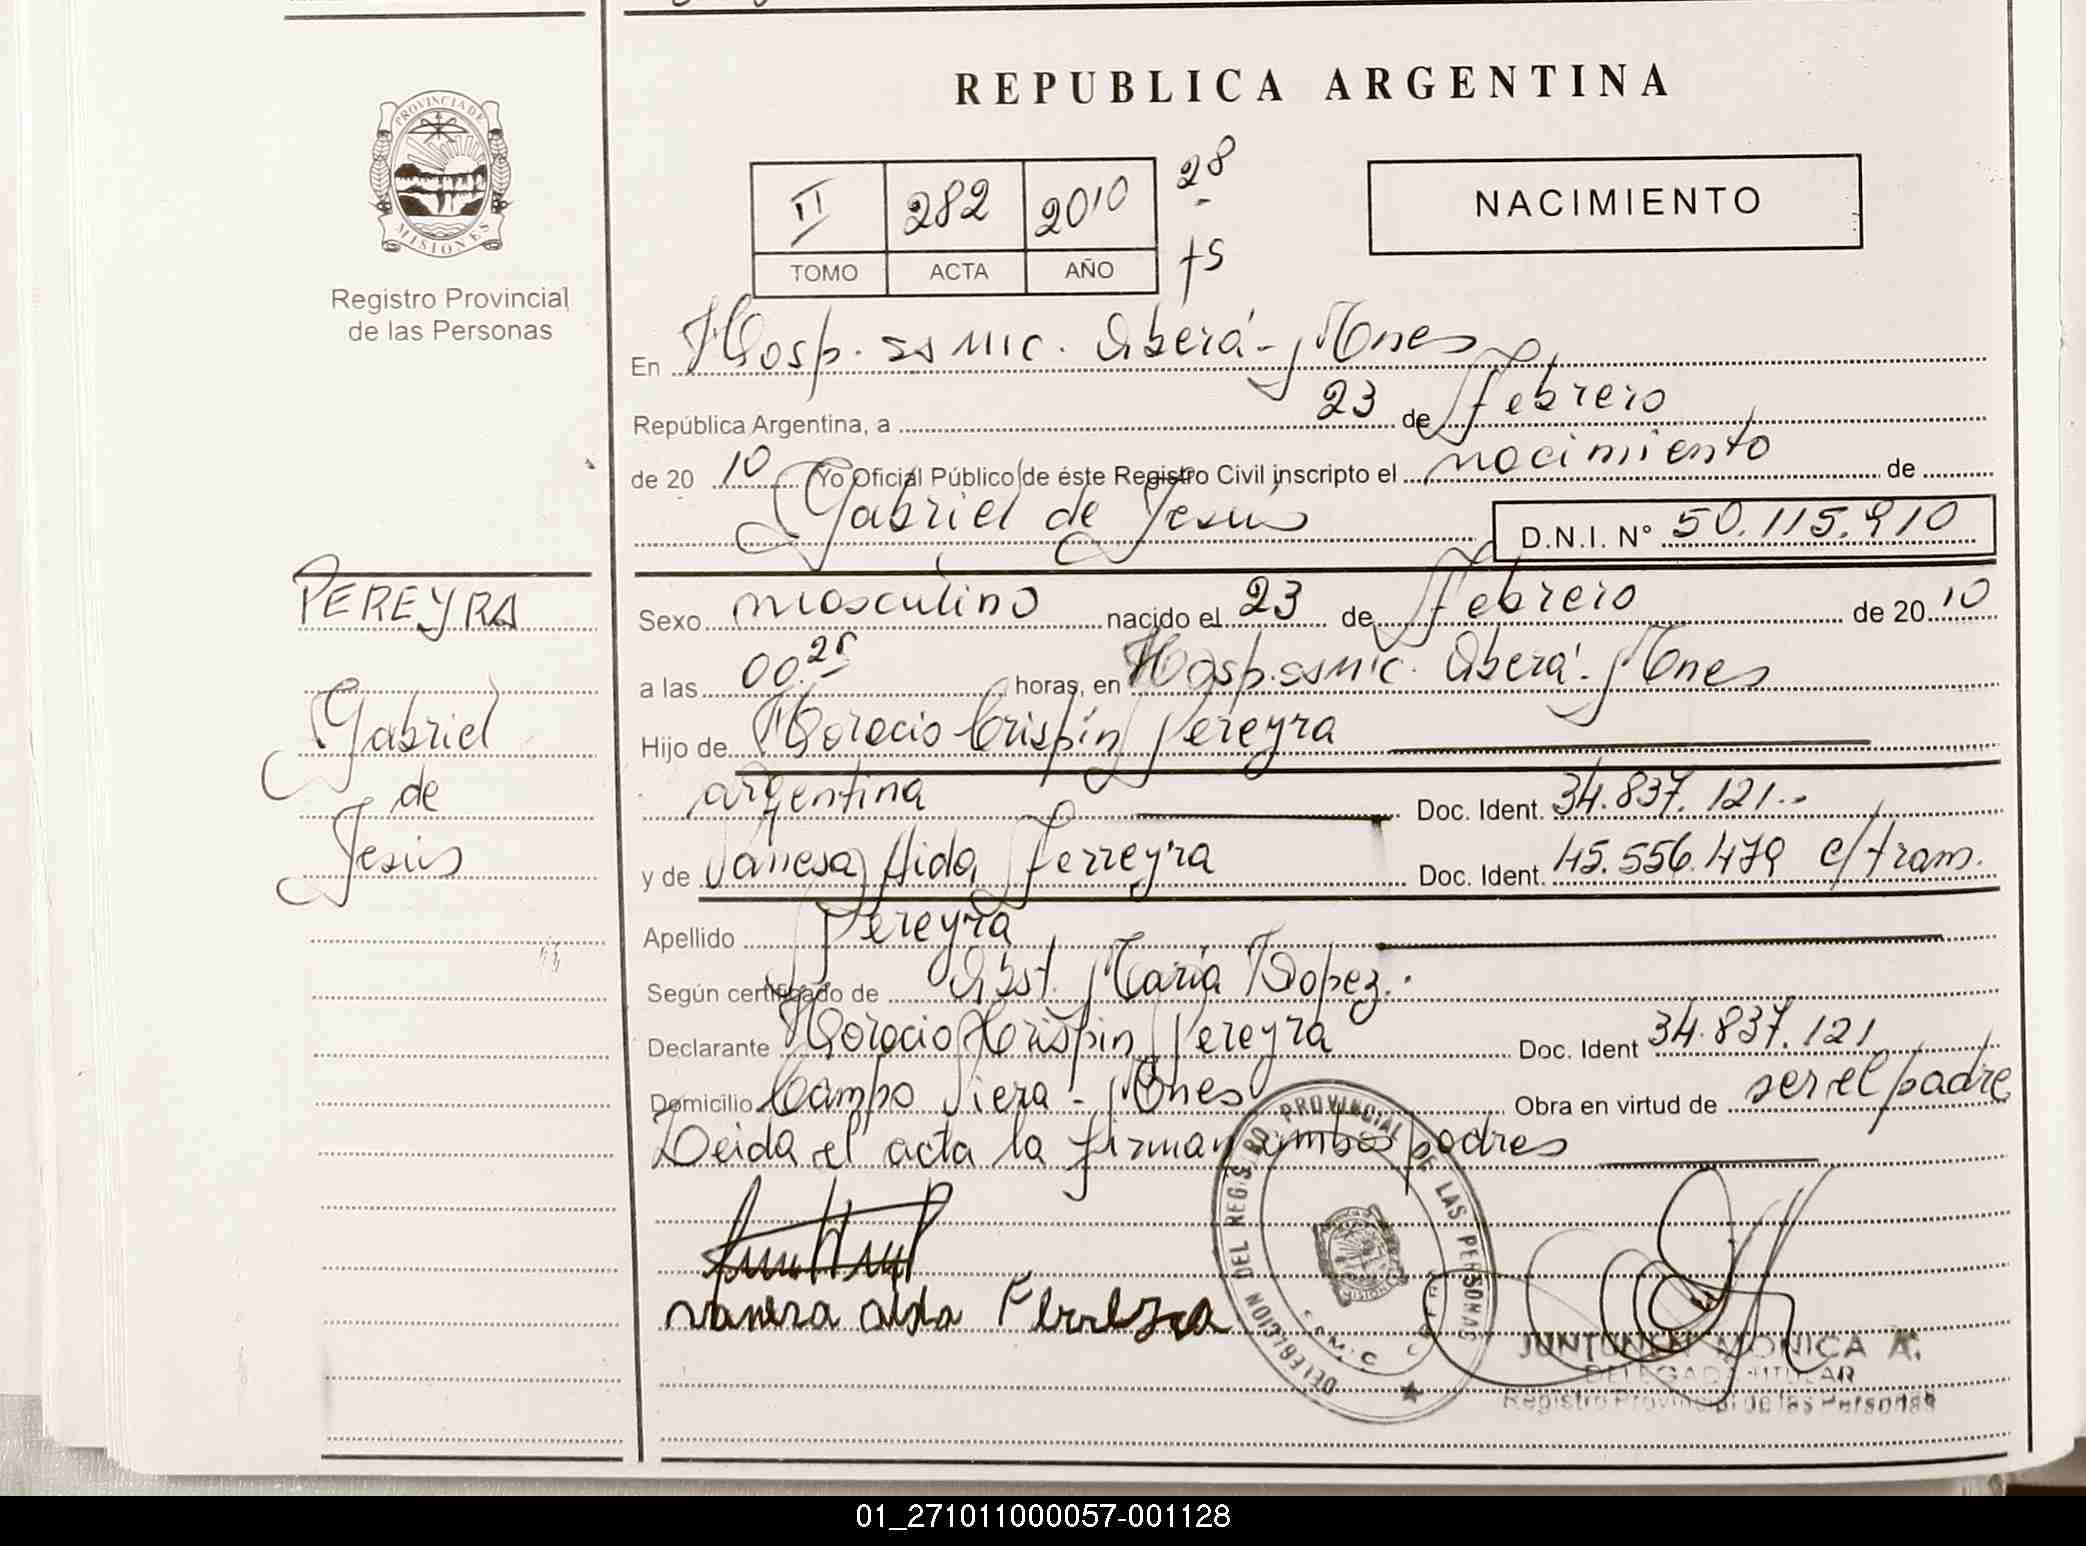 REPUBLICA ARGENTINA
PROVINCIA DE
MISIONES
Registro Provincial
de las Personas
II 282 2010 28
TOMO ACTA AÑO fs
NACIMIENTO
En Hosp. ss mic. Oberá - Mnes
República Argentina, a 23 de febrero
de 20 10 Yo Oficial Público de éste Registro Civil inscripto el nacimiento de
Gabriel de Jesús D.N.I. Nº 50.115.910
PEREYRA
Gabriel
de
Jesús
Sexo masculino nacido el 23 de febrero de 20 10
a las 00.28 horas, en Hosp. ssmic. Oberá - Mnes
Hijo de Horacio Crispín Pereyra
argentina Doc. Ident. 34.837.121.-
y de Vanesa Aida Ferreyra Doc. Ident. 45.556.479 c/tram.
Apellido Pereyra
Según certificado de Obst. María Lopez.
Declarante Horacio Crispin Pereyra Doc. Ident 34.837.121
Domicilio Campo Viera - Mnes Obra en virtud de ser el padre
Leida el acta la firman ambos padres
vanesa aida Ferreyra
DELEGACION DEL REGISTRO PROVINCIAL DE LAS PERSONAS
JUNTUNEN MONICA A.
DELEGADA TITULAR
Registro Provincial de las Personas
01_271011000057-001128